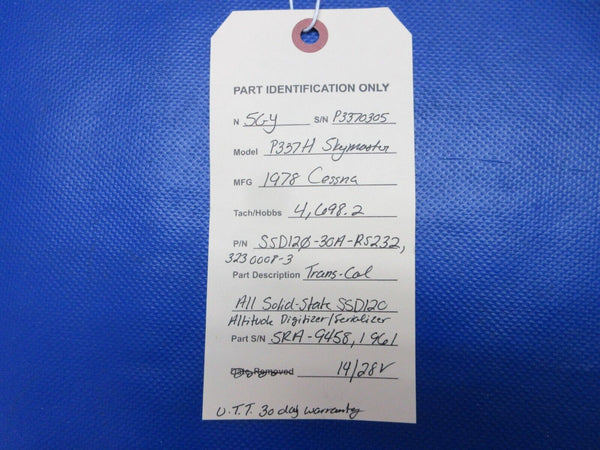 PART IDENTIFICATION ONLY
N 5GY S/N P3370305
Model P337H Skymaster
MFG 1978 Cessna
Tach/Hobbs 4,698.2
P/N SSD120-30A-RS232,
3230008-3
Part Description Trans-Cal
All Solid-State SSD120
Altitude Digitizer/Serializer
Part S/N SRA-9458, 1961
Date Removed 14/28V
U.T.T. 30 day warranty